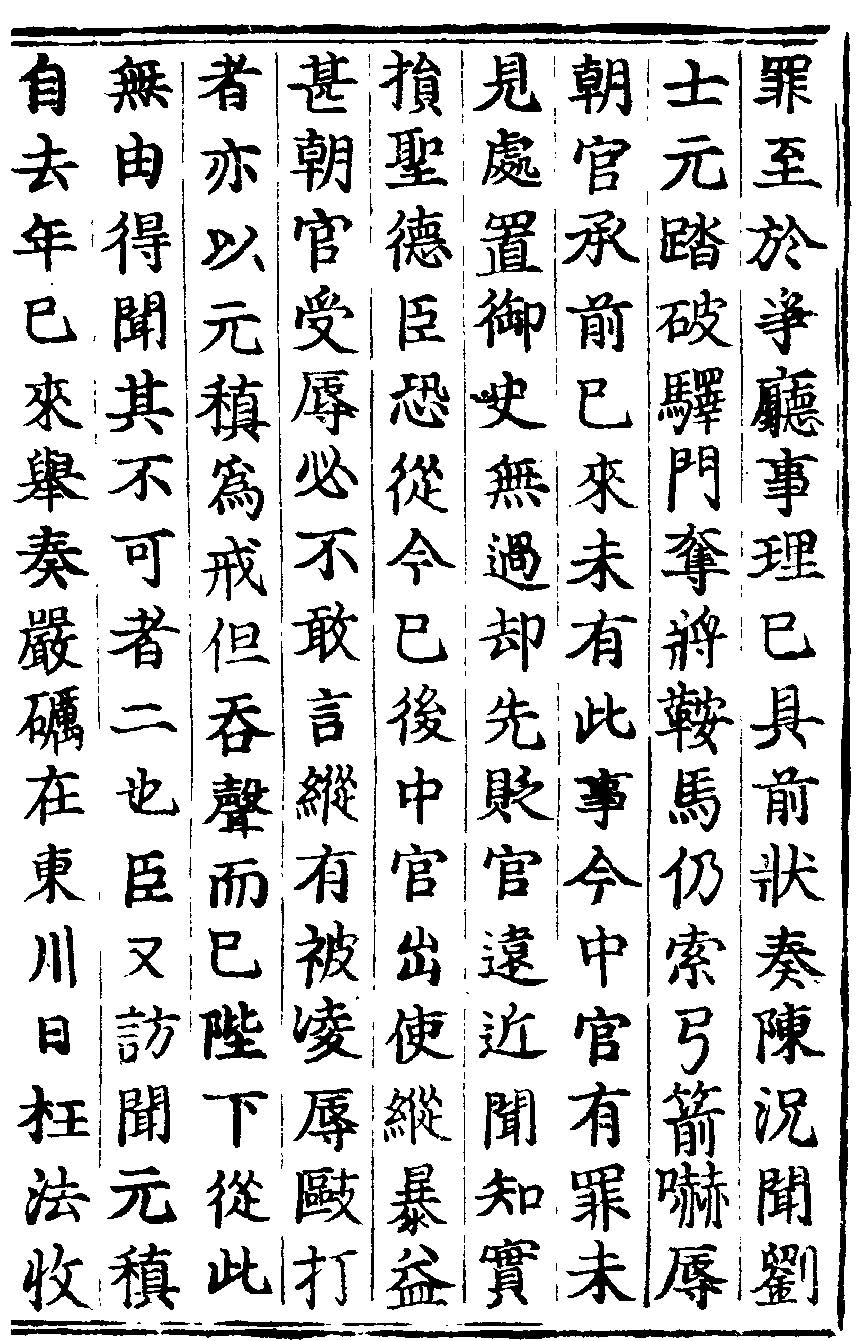 罪至於爭廳事理已具前狀奏陳況聞劉
士元踏破驛門奪將鞍馬仍索弓箭嚇辱
朝官承前已來未有此事今中官有罪未
見處置御史無過却先貶官遠近聞知實
損聖德臣恐從今已後中官出使縱暴益
甚朝官受辱必不敢言縱有被凌辱毆打
者亦以元稹爲戒但吞聲而已陛下從此
無由得聞其不可者二也臣又訪聞元稹
自去年已來舉奏嚴礪在東川日枉法收